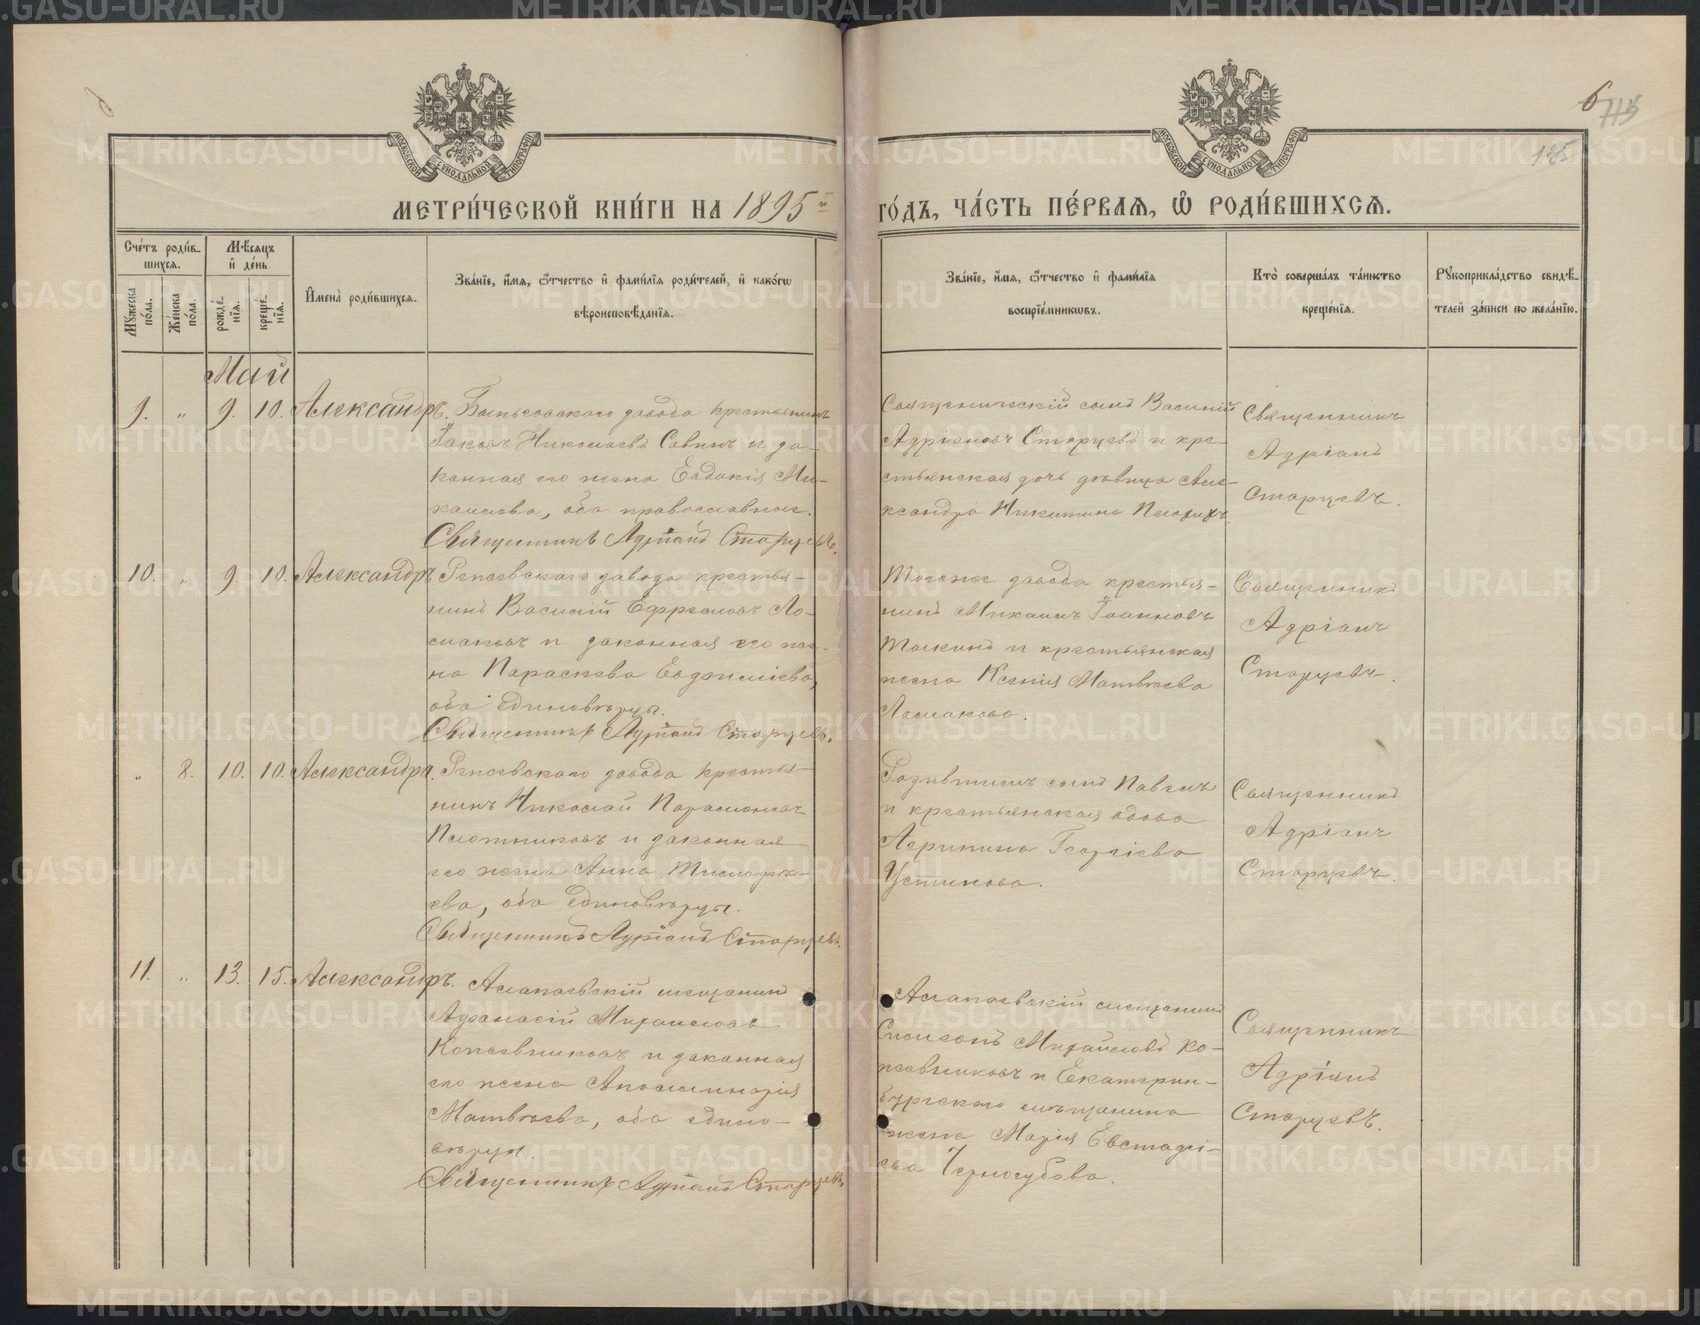 6
115
125
МОСКОВСКОЙ СѴНОДАЛЬНОЙ ТИПОГРАФІИ
МОСКОВСКОЙ СѴНОДАЛЬНОЙ ТИПОГРАФІИ
МЕТРИ́ЧЕСКОЙ КНИ́ГИ НА 1895й
ГО́ДЪ, ЧА́СТЬ ПЕ́РВАЯ, Ѡ РОДИ́ВШИХСѦ.
Сче́тъ роди́в-
шихся.
Мѣ́сяцъ
и҆ де́нь
Мꙋ́жеска по́ла.
Же́нска по́ла.
рожде́-
нїя.
креще́-
нїя.
И҆мена̀ роди́вшихся.
Зва́нїе, и҆́мя, ѻ҆́тчество и҆ фами́лїя роди́телей, и҆ како́гѡ
вѣроисповѣ́данїя.
Зва́нїе, и҆́мя, ѻ҆́тчество и҆ фами́лїя
воспрїе́мникѡвъ.
Кто̀ соверша́лъ та́инство
креще́нїя.
Рꙋкоприкла́дство свидѣ́-
телей за́писи по жела́нїю.
Май
9. „ 9. 10. Александръ.
Быньговскаго завода крестьянинъ
Іаковъ Николаевъ Савинъ и за-
конная его жена Евдокія Ми-
хаилова, оба православные.
Священникъ Адріанъ Старцевъ.
Священническій сынъ Василій
Адріановъ Старцевъ и кре-
стьянская дочь дѣвица Але-
ксандра Никитина
Священникъ
Адріанъ
Старцевъ.
10. „ 9. 10. Александръ
Режевского завода крестья-
нинъ Василій Ефремовъ Ло-
маковъ и законная его же-
на Параскева
оба единовѣрцы.
Священникъ Адріанъ Старцевъ.
Тогоже завода крестья-
нинъ Михаилъ Іоанновъ
и крестьянская
жена Ксенія Матвѣева
Ломакова.
Священникъ
Адріанъ
Старцевъ.
„ 8. 10. 10. Александра.
Режевского завода крестья-
нинъ Николай Парамоновъ
Плотниковъ и законная
его жена Анна Тимофѣ-
ева, оба единовѣрцы.
Священникъ Адріанъ Старцевъ.
Родившихъ сынъ Павелъ
и крестьянская вдова
Агрипина Георгіева
Устинова.
Священникъ
Адріанъ
Старцевъ.
11. „ 13. 15. Александръ.
Алапаевскій мещанинъ
Афанасій Михаиловъ
и законная
его жена Аполлинарія
Матвѣева, оба едино-
вѣрцы.
Священникъ Адріанъ Старцевъ
Алапаевскій мещанинъ
Михайловъ
и Екатерин-
бургскаго мѣщанина
жена Марія Евстафі-
ева Черногубова.
Священникъ
Адріанъ
Старцевъ.
METRIKI.GASO-URAL.RU